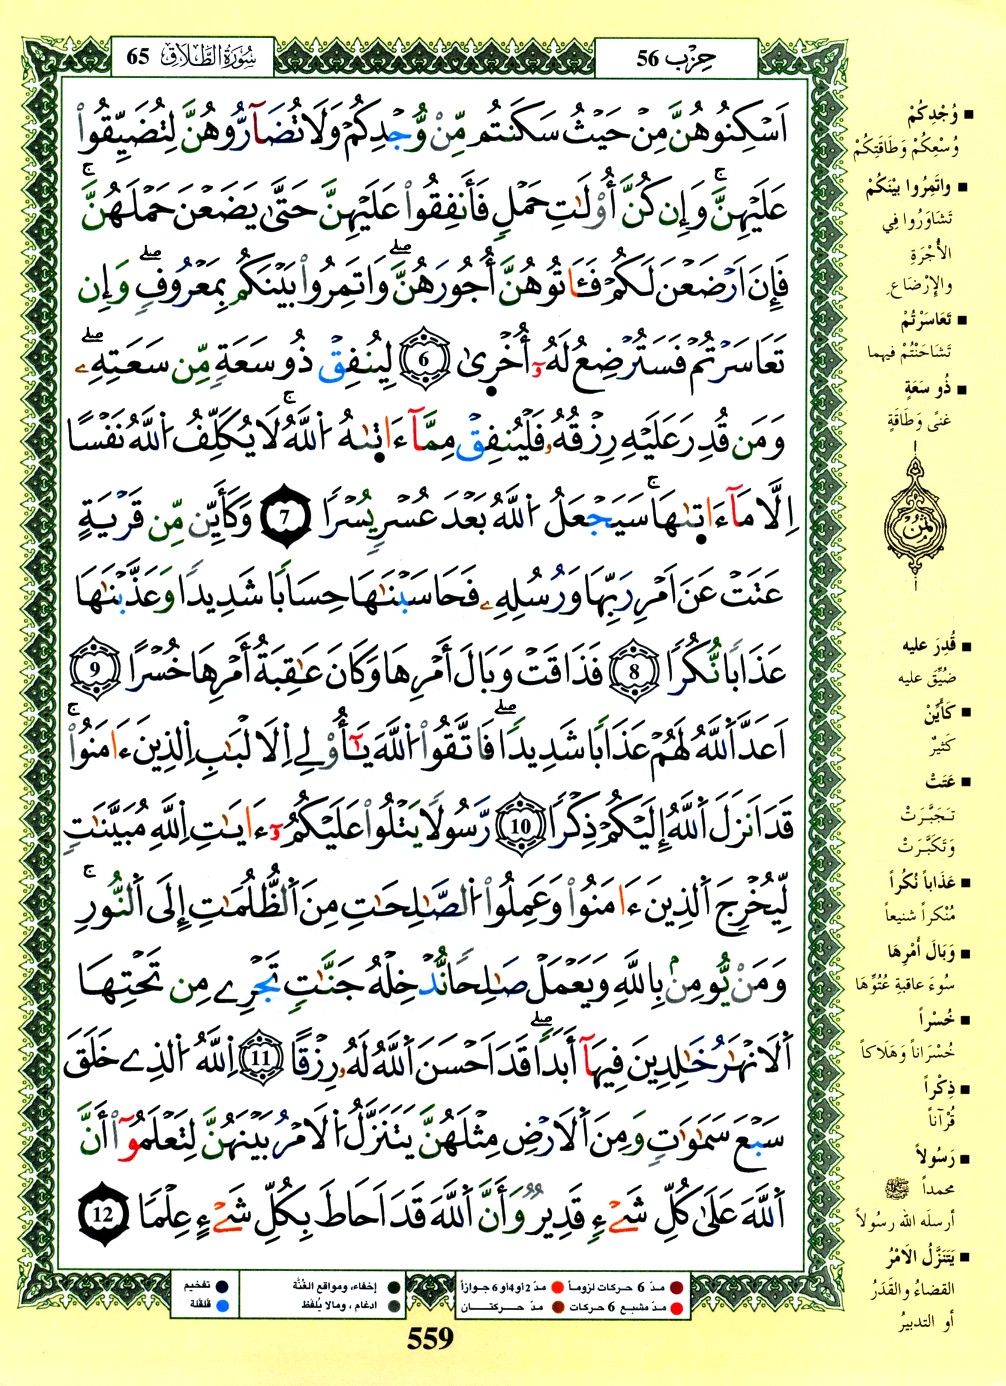 سُورَةُ الطَّلَاقِ 65
حِزْب 56
اَسْكِنُوهُنَّ مِنْ حَيْثُ سَكَنتُم مِّنْ وُّجْدِكُمْ وَلَا تُضَآرُّوهُنَّ لِتُضَيِّقُواْ
عَلَيْهِنَّۚ وَإِن كُنَّ أُوْلَٰتِ حَمْلٖ فَأَنفِقُواْ عَلَيْهِنَّ حَتَّىٰ يَضَعْنَ حَمْلَهُنَّۚ
فَإِنَ اَرْضَعْنَ لَكُمْ فَـَٔاتُوهُنَّ أُجُورَهُنَّۖ وَاتَمِرُواْ بَيْنَكُم بِمَعْرُوفٖۖ وَإِن
تَعَاسَرْتُمْ فَسَتُرْضِعُ لَهُۥٓ أُخْرىٰۖ 6 لِيُنفِقْ ذُو سَعَةٖ مِّن سَعَتِهِۦۖ
وَمَن قُدِرَ عَلَيْهِ رِزْقُهُۥ فَلْيُنفِقْ مِمَّآ ءَاتىٰهُ اُ۬للَّهُۚ لَا يُكَلِّفُ اُ۬للَّهُ نَفْساً
اِلَّا مَآ ءَاتىٰهَاۚ سَيَجْعَلُ اُ۬للَّهُ بَعْدَ عُسْرٖ يُسْراٗ 7 وَكَأَيِّن مِّن قَرْيَةٍ
عَتَتْ عَنَ اَمْرِ رَبِّهَا وَرُسُلِهِۦ فَحَاسَبْنَٰهَا حِسَاباٗ شَدِيداٗ وَعَذَّبْنَٰهَا
عَذَاباٗ نُّكُراٗ 8 فَذَاقَتْ وَبَالَ أَمْرِهَا وَكَانَ عَٰقِبَةُ أَمْرِهَا خُسْراً 9
اَعَدَّ اَ۬للَّهُ لَهُمْ عَذَاباٗ شَدِيداٗۖ فَاتَّقُواْ اُ۬للَّهَ يَٰٓأُوْلِے اِ۬لَالْبَٰبِ اِ۬لذِينَ ءَامَنُواْۚ
قَدَ اَنزَلَ اَ۬للَّهُ إِلَيْكُمْ ذِكْراٗ 10 رَّسُولاٗ يَتْلُواْ عَلَيْكُمُۥٓ ءَايَٰتِ اِ۬للَّهِ مُبَيَّنَٰتٖ
لِّيُخْرِجَ اَ۬لذِينَ ءَامَنُواْ وَعَمِلُواْ اُ۬لصَّٰلِحَٰتِ مِنَ اَ۬لظُّلُمَٰتِ إِلَى اَ۬لنُّورِۚ
وَمَنْ يُّومِنۢ بِاللَّهِ وَيَعْمَلْ صَٰلِحاٗ نُّدْخِلْهُ جَنَّٰتٖ تَجْرِے مِن تَحْتِهَا
اَ۬لَانْهَٰرُ خَٰلِدِينَ فِيهَآ أَبَداٗۖ قَدَ اَحْسَنَ اَ۬للَّهُ لَهُۥ رِزْقاً 11 اِ۬للَّهُ اُ۬لذِے خَلَقَ
سَبْعَ سَمَٰوَٰتٖ وَمِنَ اَ۬لَارْضِ مِثْلَهُنَّ يَتَنَزَّلُ اُ۬لَامْرُ بَيْنَهُنَّ لِتَعْلَمُوٓاْ أَنَّ
اَ۬للَّهَ عَلَىٰ كُلِّ شَےْءٖ قَدِيرٞ وَأَنَّ اَ۬للَّهَ قَدَ اَحَاطَ بِكُلِّ شَےْءٍ عِلْماٗ 12
■ وُجْدِكُمْ
وُسْعِكُمْ وَطَاقَتِكُمْ
■ واتَمِرُوا بيْنَكُمْ
تَشَاوَرُوا فِي
الأُجْرَةِ
والإِرْضَاعِ
■ تَعَاسَرْتُمْ
تَشَاحَنْتُمْ فيهما
■ ذُو سَعَةٍ
غنىً وَطَاقَةٍ
ثمن
■ قُدِرَ عليه
ضُيِّقَ عليه
■ كَأَيِّنْ
كَثيرٌ
■ عَتَتْ
تَجَبَّرَتْ
وَتَكَبَّرَتْ
■ عَذَاباً نُكُراً
مُنْكراً شنيعاً
■ وَبَالَ أَمْرِهَا
سُوءَ عاقبةِ عُتُوِّهَا
■ خُسْراً
خُسْرَاناً وَهَلَاكاً
■ ذِكْراً
قُرْآناً
■ رَسُولاً
محمداً ﷺ
أرسلَه الله رسُولاً
■ يَتَنَزَّلُ الَامْرُ
القضاءُ والقَدَرُ
أو التدبيرُ
مدّ 6 حركات لزوماً مدّ 2 أو 4 أو 6 جوازاً
مدّ مشبع 6 حركات مدّ حركتان
إخفاء، ومواقع الغُنَّة تفخيم
ادغام، ومالا يُلفَظ قلقلة
559